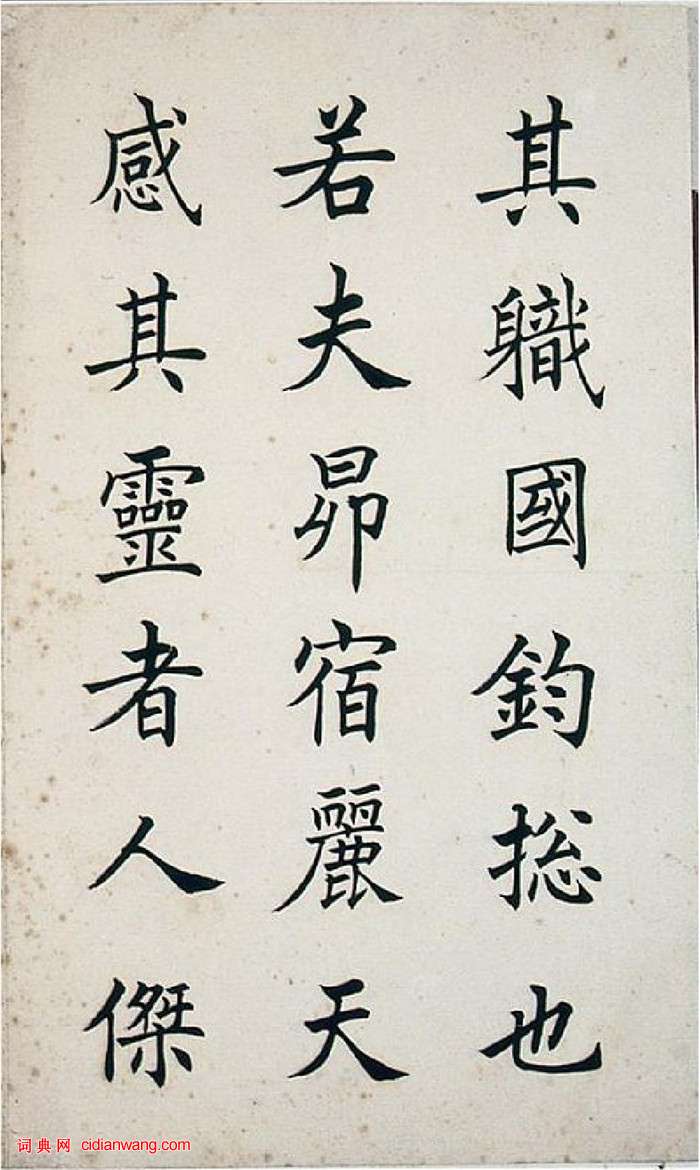 其軄國鈞捴也
若夫昴宿麗天
感其靈者人傑
词典网 cidianwang.com